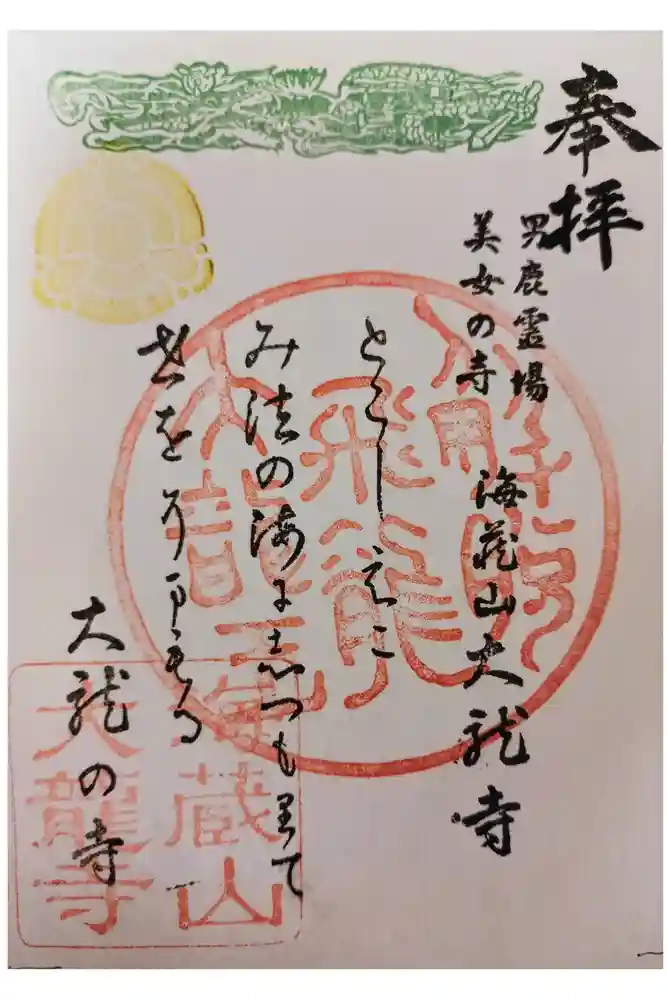 奉拝
男鹿霊場
美女の寺
海蔵山大龍寺
とこしえに
み法の海に志つもりて
大龍の寺
海蔵山
大龍寺